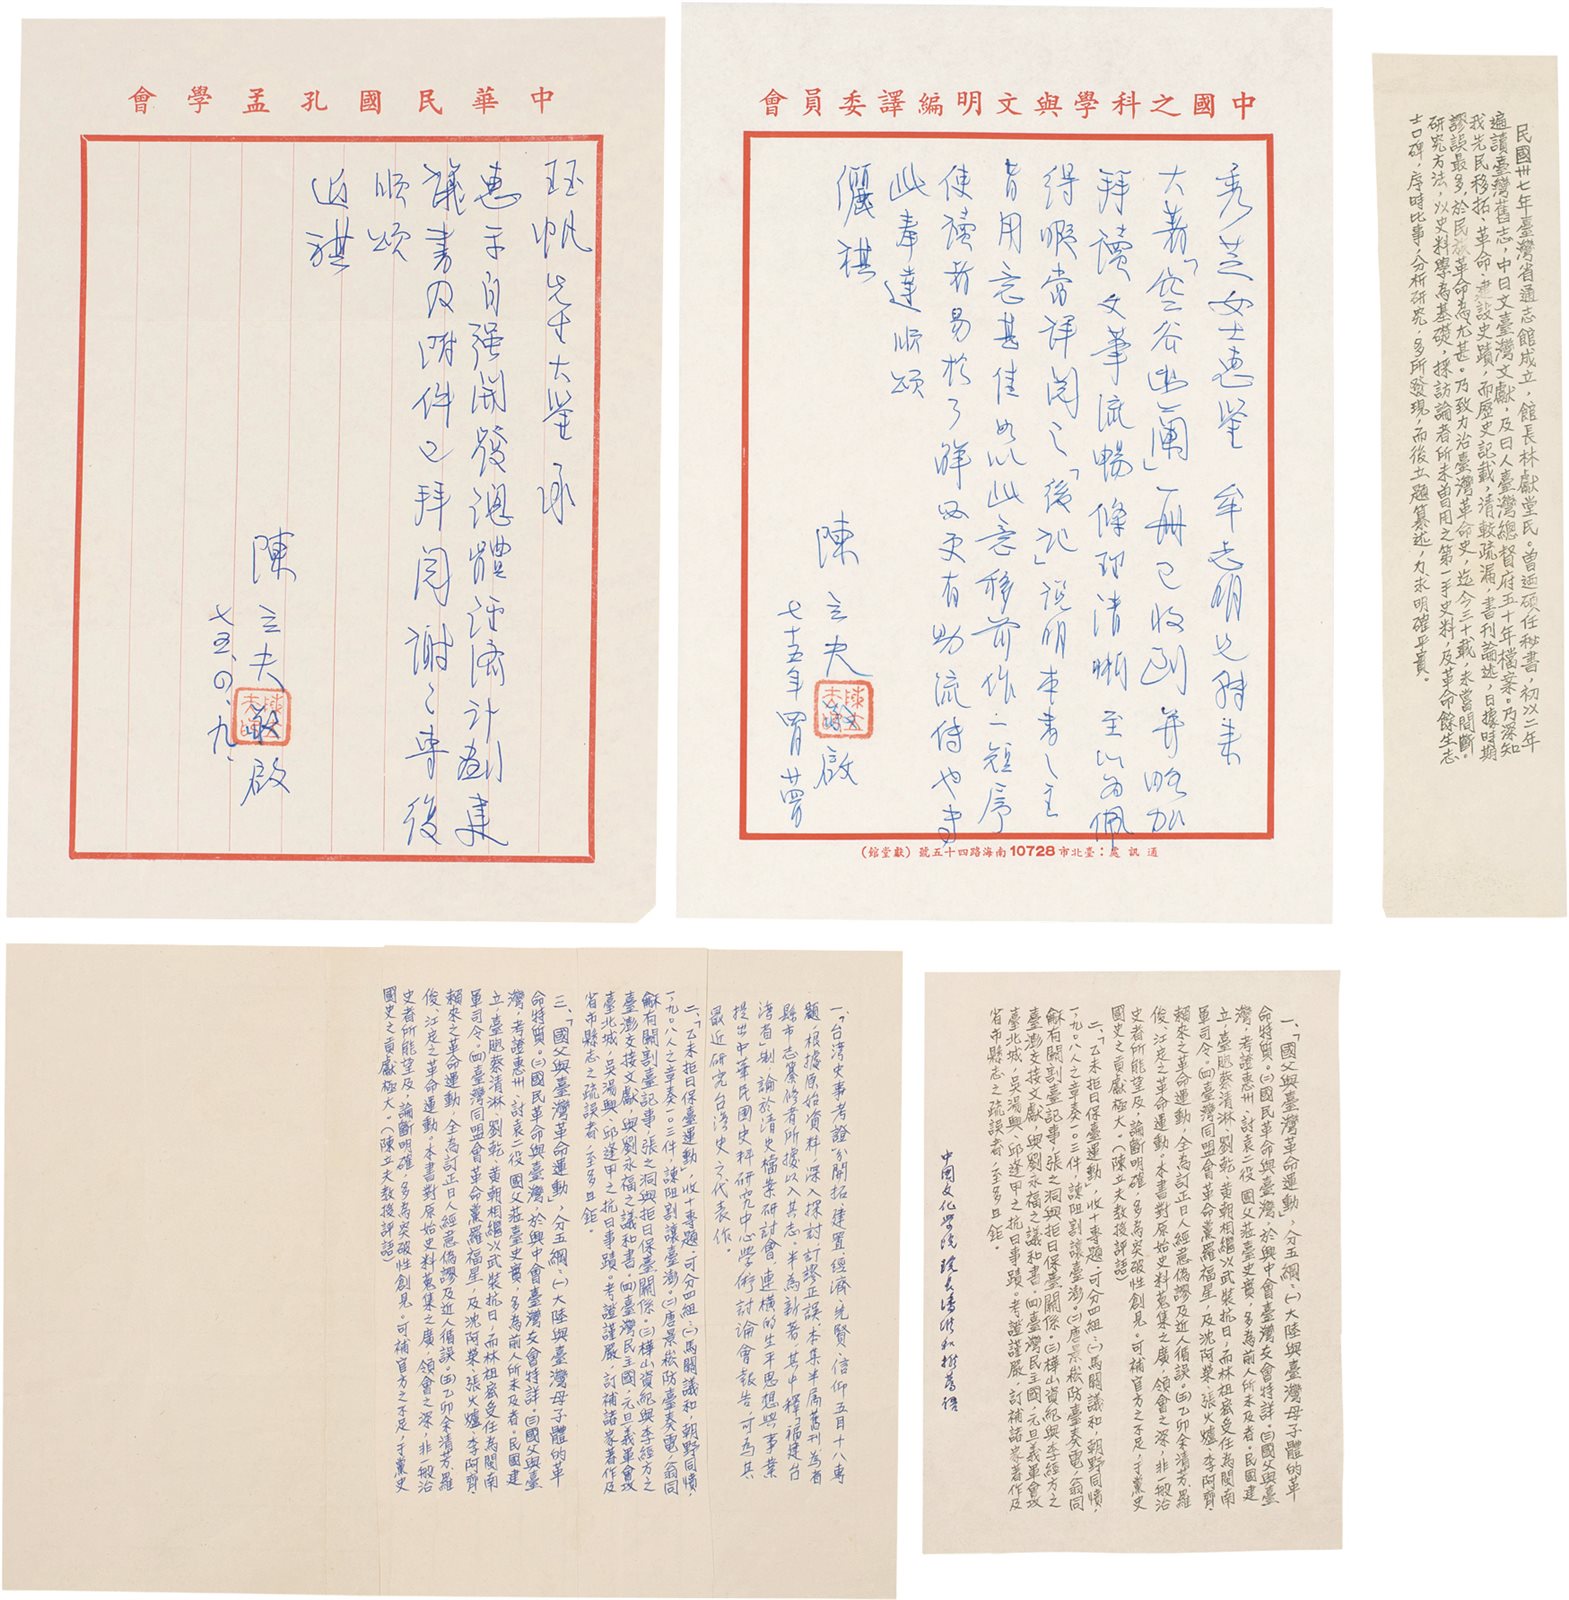 中華民國孔孟學會
珏帆先生大鑒承
惠示自强開發總體經濟計劃建
議書及附件已拜閱謝謝專復
順頌
近祺
陳立夫敬啟
七五、四、九、
中國之科學與文明編譯委員會
秀芝女士惠鑒 牟志明兄轉來
大著「空谷幽蘭」一冊已收到并略加
拜讀文筆流暢條理清晰至以為佩
得暇當詳閱之「後記」說明本書之主
旨用意甚佳如以此意移前作一短序
使讀者易於了解必更有助流傳也專
此奉達順頌
儷祺
陳立夫敬啟
七十五年四月廿
通訊處：臺北市10728南海路四十五號（獻堂館）
民國卅七年臺灣省通志館成立，館長林獻堂氏。曾迺碩任秘書，初以二年
遍讀臺灣舊志，中日文臺灣文獻，及日人臺灣總督府五十年檔案。乃深知
我先民移拓、革命、建設史蹟，而歷史記載，清較疏漏，書刊論述，日據時期
謬誤最多，於民族革命為尤甚。乃致力治臺灣革命史，迄今三十載，未嘗間斷。
研究方法，以史料學為基礎，採訪論者所未曾用之第一手史料，及革命餘生志
士口碑，序時比事，分析研究，多所發現，而後立題纂述，力求明確平實。
一、「台湾史事考證」分開拓、建置、經濟、先賢、信仰五目十八專
題，根據原始資料，深入探討，訂謬正誤。本集半屬舊刊，為省
縣市志纂修者所據以入其志。半為新著，其中釋「福建台
湾省」制，論於清史檔案研討會，連横的生平思想與事業
提出中華民國史料研究中心學術討論會報告，可為其
最近研究台湾史之代表作。
二、「乙未拒日保臺運動」，收十專題，可分四組：㈠馬關議和，朝野同憤，
一、九〇八人之章奏一〇三件，諫阻割讓臺澎。㈡唐景崧防臺奏電，翁同
龢有關割臺記事，張之洞與拒日保臺關係。㈢樺山資紀與李經方之
臺澎交接文獻，與劉永福之議和書。㈣臺灣民主國，元旦義軍會攻
臺北城，吳湯興、邱逢甲之抗日事蹟。考證謹嚴，訂補諸家著作及
省市縣志之疏誤者，至多且鉅。
三、「國父與臺灣革命運動」，分五綱：㈠大陸與臺灣母子體的革
命特質。㈡國民革命與臺灣，於興中會臺灣支會特詳。㈢國父與臺
灣，考證惠州、討袁二役，國父蒞臺史實，多為前人所未及者。民國建
立，臺胞蔡清淋、劉乾、黄朝相繼以武裝抗日，而林祖密受任為閩南
軍司令。㈣臺灣同盟會革命黨羅福星，及沈阿榮、張火爐、李阿齊、
賴來之革命運動，全為訂正日人經意偽謬及近人循誤。㈤乙卯余清芳、羅
俊、江定之革命運動。本書對原始史料蒐集之廣，領會之深，非一般治
史者所能望及，論斷明確，多為突破性創見。可補官方之不足，于黨史
國史之貢獻極大。（陳立夫教授評語）
一、「國父與臺灣革命運動」，分五綱：㈠大陸與臺灣母子體的革
命特質。㈡國民革命與臺灣，於興中會臺灣支會特詳。㈢國父與臺
灣，考證惠州、討袁二役，國父蒞臺史實，多為前人所未及者。民國建
立，臺胞蔡清淋、劉乾、黄朝相繼以武裝抗日，而林祖密受任為閩南
軍司令。㈣臺灣同盟會革命黨羅福星，及沈阿榮、張火爐、李阿齊、
賴來之革命運動，全為訂正日人經意偽謬及近人循誤。㈤乙卯余清芳、羅
俊、江定之革命運動。本書對原始史料蒐集之廣，領會之深，非一般治
史者所能望及，論斷明確，多為突破性創見。可補官方之不足，于黨史
國史之貢獻極大。（陳立夫教授評語）
二、「乙未拒日保臺運動」，收十專題，可分四組：㈠馬關議和，朝野同憤，
一、九〇八人之章奏一〇三件，諫阻割讓臺澎。㈡唐景崧防臺奏電，翁同
龢有關割臺記事，張之洞與拒日保臺關係。㈢樺山資紀與李經方之
臺澎交接文獻，與劉永福之議和書。㈣臺灣民主國，元旦義軍會攻
臺北城，吳湯興、邱逢甲之抗日事蹟。考證謹嚴，訂補諸家著作及
省市縣志之疏誤者，至多且鉅。
中国文化学院院長潘維和撰荐語